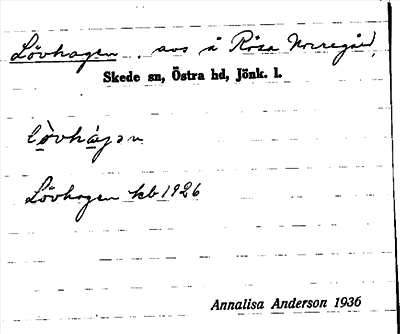 Lövhagen . avs å Rösa Norregård,
Skede sn, Östra hd, Jönk. l.
lö̀vhágən
Lövhagen kb 1926
Annalisa Anderson 1936